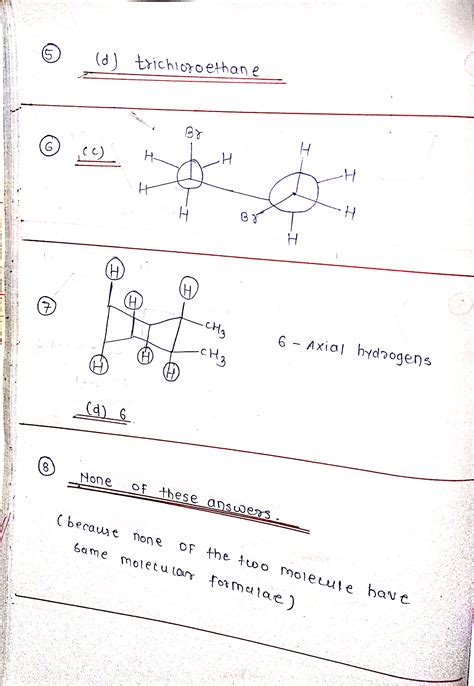 5 (d) trichloroethane
6 (c)
Br
H H
H
H
H
H
Br H
H
7
H
H H
CH3
CH3
H H H
6 - Axial hydrogens
(d) 6
8 None of these answers.
(because none of the two molecule have
same molecular formulae)